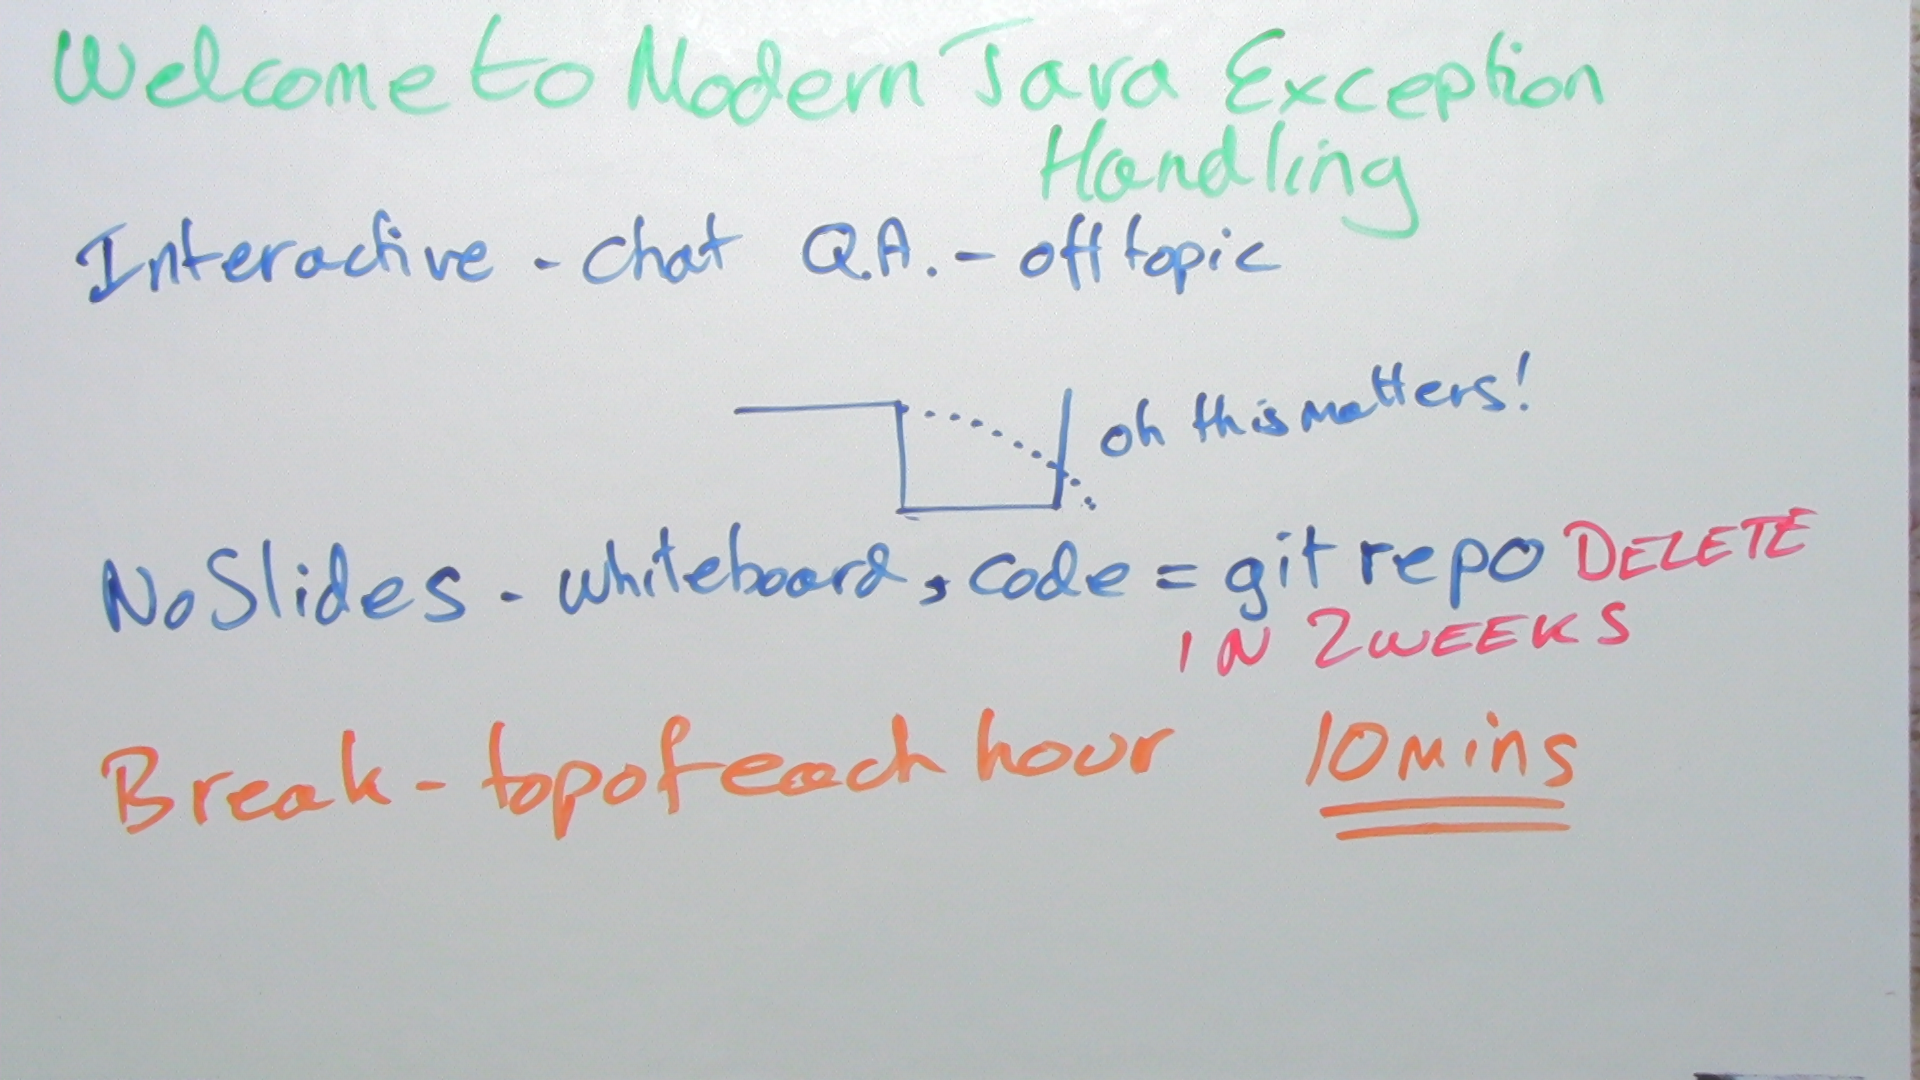 Welcome to Modern Java Exception
Handling
Interactive - chat Q.A. - off topic
oh this matters!
No Slides - whiteboard, code = git repo DELETE
IN 2 WEEKS
Break - top of each hour 10 mins